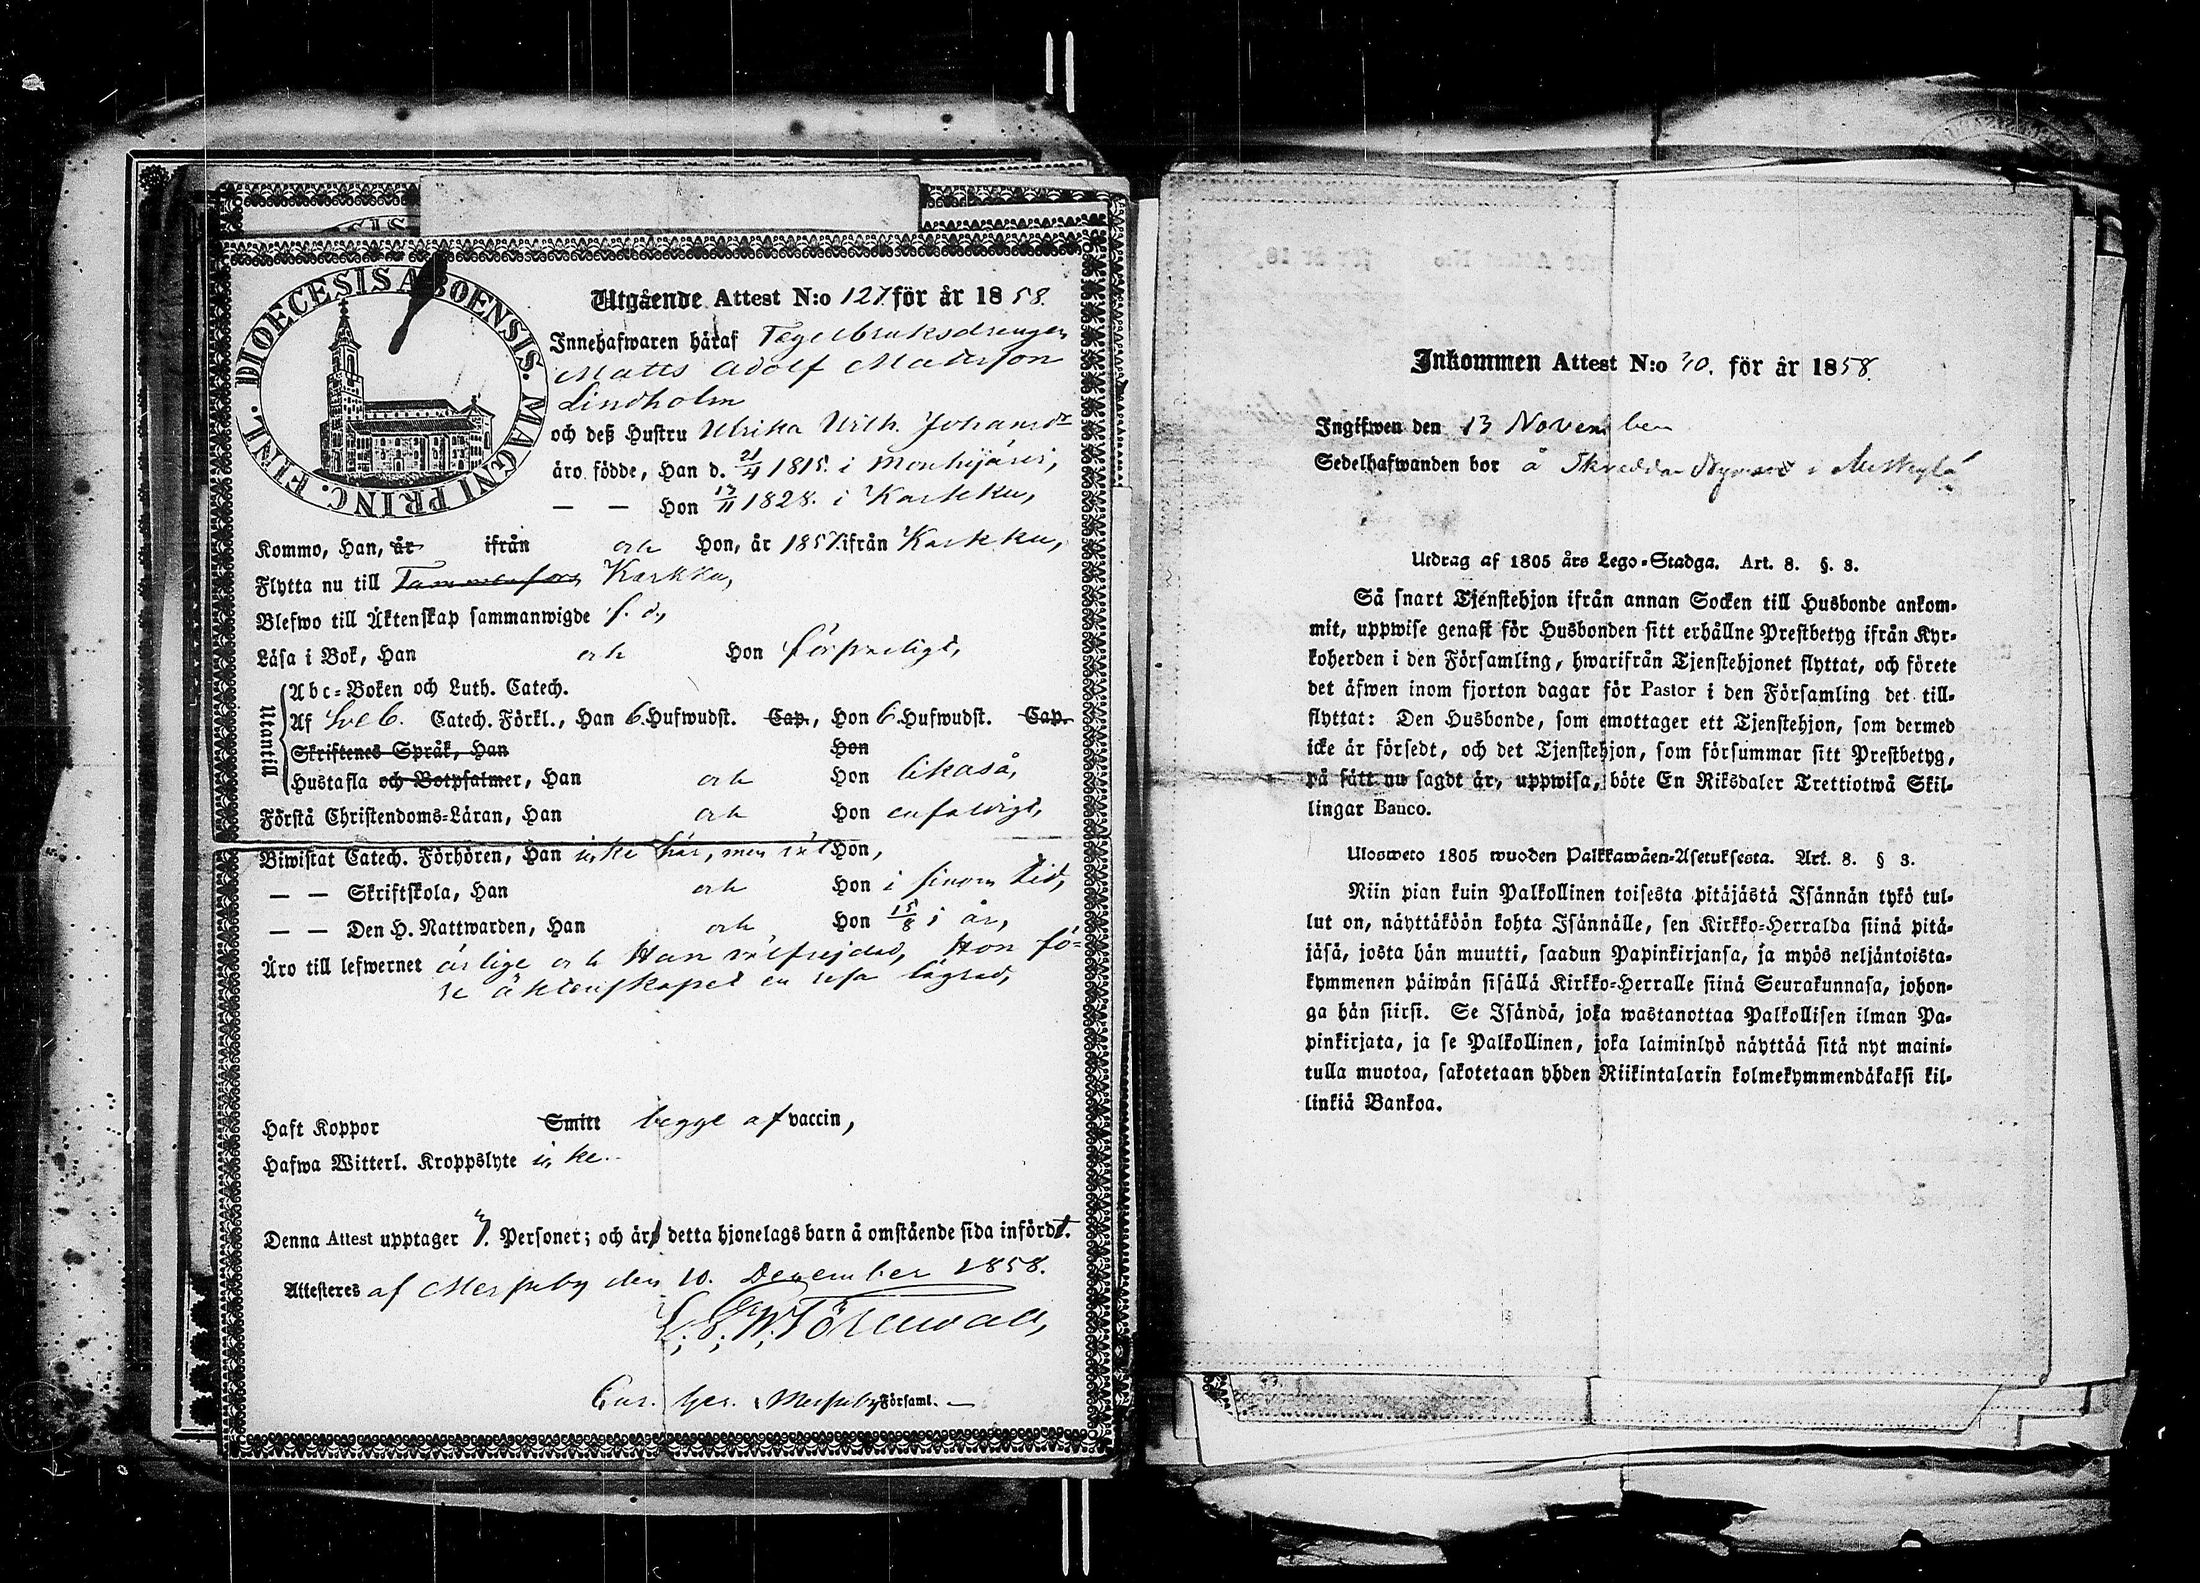 DIOECESIS ABOENSIS. MAGNI PRINC. FINL.
Utgående Attest N:o 127. för år 1858.
Innehafwaren häraf Tegelbruksdrengen
Matts Adolf Mattsson
Lindholm
och deß Hustru Ulrika Johansdr
äro födde, Han d. 21/4 1815. i Mouhijärvi,
— — Hon 13/11 1828. i Karkku,
Kommo, Han, år ifrån och Hon, år 1857. ifrån Karkku,
Flytta nu till Tammerfors Karkku,
Blefwo till Äktenskap sammanwigde s. d,
Läsa i Bok, Han och Hon försvarligt,
Utantill
Abc-Boken och Luth. Catech.
Af Sveb. Catech. Förkl., Han 6. Hufwudst. Cap., Hon 6. Hufwudst. Cap.
Skriftenes Språk, Han Hon
Hustafla och Botpsalmer, Han och Hon likaså,
Förstå Christendoms-Läran, Han och Hon enfaldigt,
Biwistat Catech. Förhören, Han icke här, men Hon,
— — Skriftskola, Han och Hon i sinom tid,
— — Den H. Nattwarden, Han och Hon 15/8 i år,
Äro till lefwernet ärlige och Han välfrejdad, Hon fö-
re äktenskapet en resa lägrad,
Haft Koppor Smitt begge af vaccin,
Hafwa Witterl. Kroppslyte icke.
Denna Attest upptager Personer; och är detta hjonelags barn å omstående sida infördt.
Attesteres af Messuby den 10. December 1858.
Törnwall,
Messuby Församl. —
Inkommen Attest N:o 30. för år 1858.
Ingifwen den 13 November
Sedelhafwanden bor å Skreddar i
Utdrag af 1805 års Lego-Stadga. Art. 8. §. 3.
Så snart Tjenstehjon ifrån annan Socken till Husbonde ankom-
mit, uppwise genast för Husbonden sitt erhållne Prestbetyg ifrån Kyr-
koherden i den Församling, hwarifrån Tjenstehjonet flyttat, och förete
det äfwen inom fjorton dagar för Pastor i den Församling det till-
flyttat: Den Husbonde, som emottager ett Tjenstehjon, som dermed
icke är försedt, och det Tjenstehjon, som försummar sitt Prestbetyg,
på sätt nu sagdt är, uppwisa, böte En Riksdaler Trettiotwå Skil-
lingar Banco.
Ulosweto 1805 wuoden Palkkawäen-Asetuksesta. Art. 8. § 3.
Niin pian kuin Palkollinen toisesta pitäjästä Isännän tykö tul-
lut on, näyttäköön kohta Isännälle, sen Kirkko-Herralda siinä pitä-
jäsä, josta hän muutti, saadun Papinkirjansa, ja myös neljäntoista-
kymmenen päiwän sisällä Kirkko-Herralle siinä Seurakunnasa, johon-
ga hän siirsi. Se Isändä, joka wastanottaa Palkollisen ilman Pa-
pinkirjata, ja se Palkollinen, joka laiminlyö näyttää sitä nyt maini-
tulla muotoa, sakotetaan yhden Riikintalarin kolmekymmendäkaksi kil-
linkiä Bankoa.